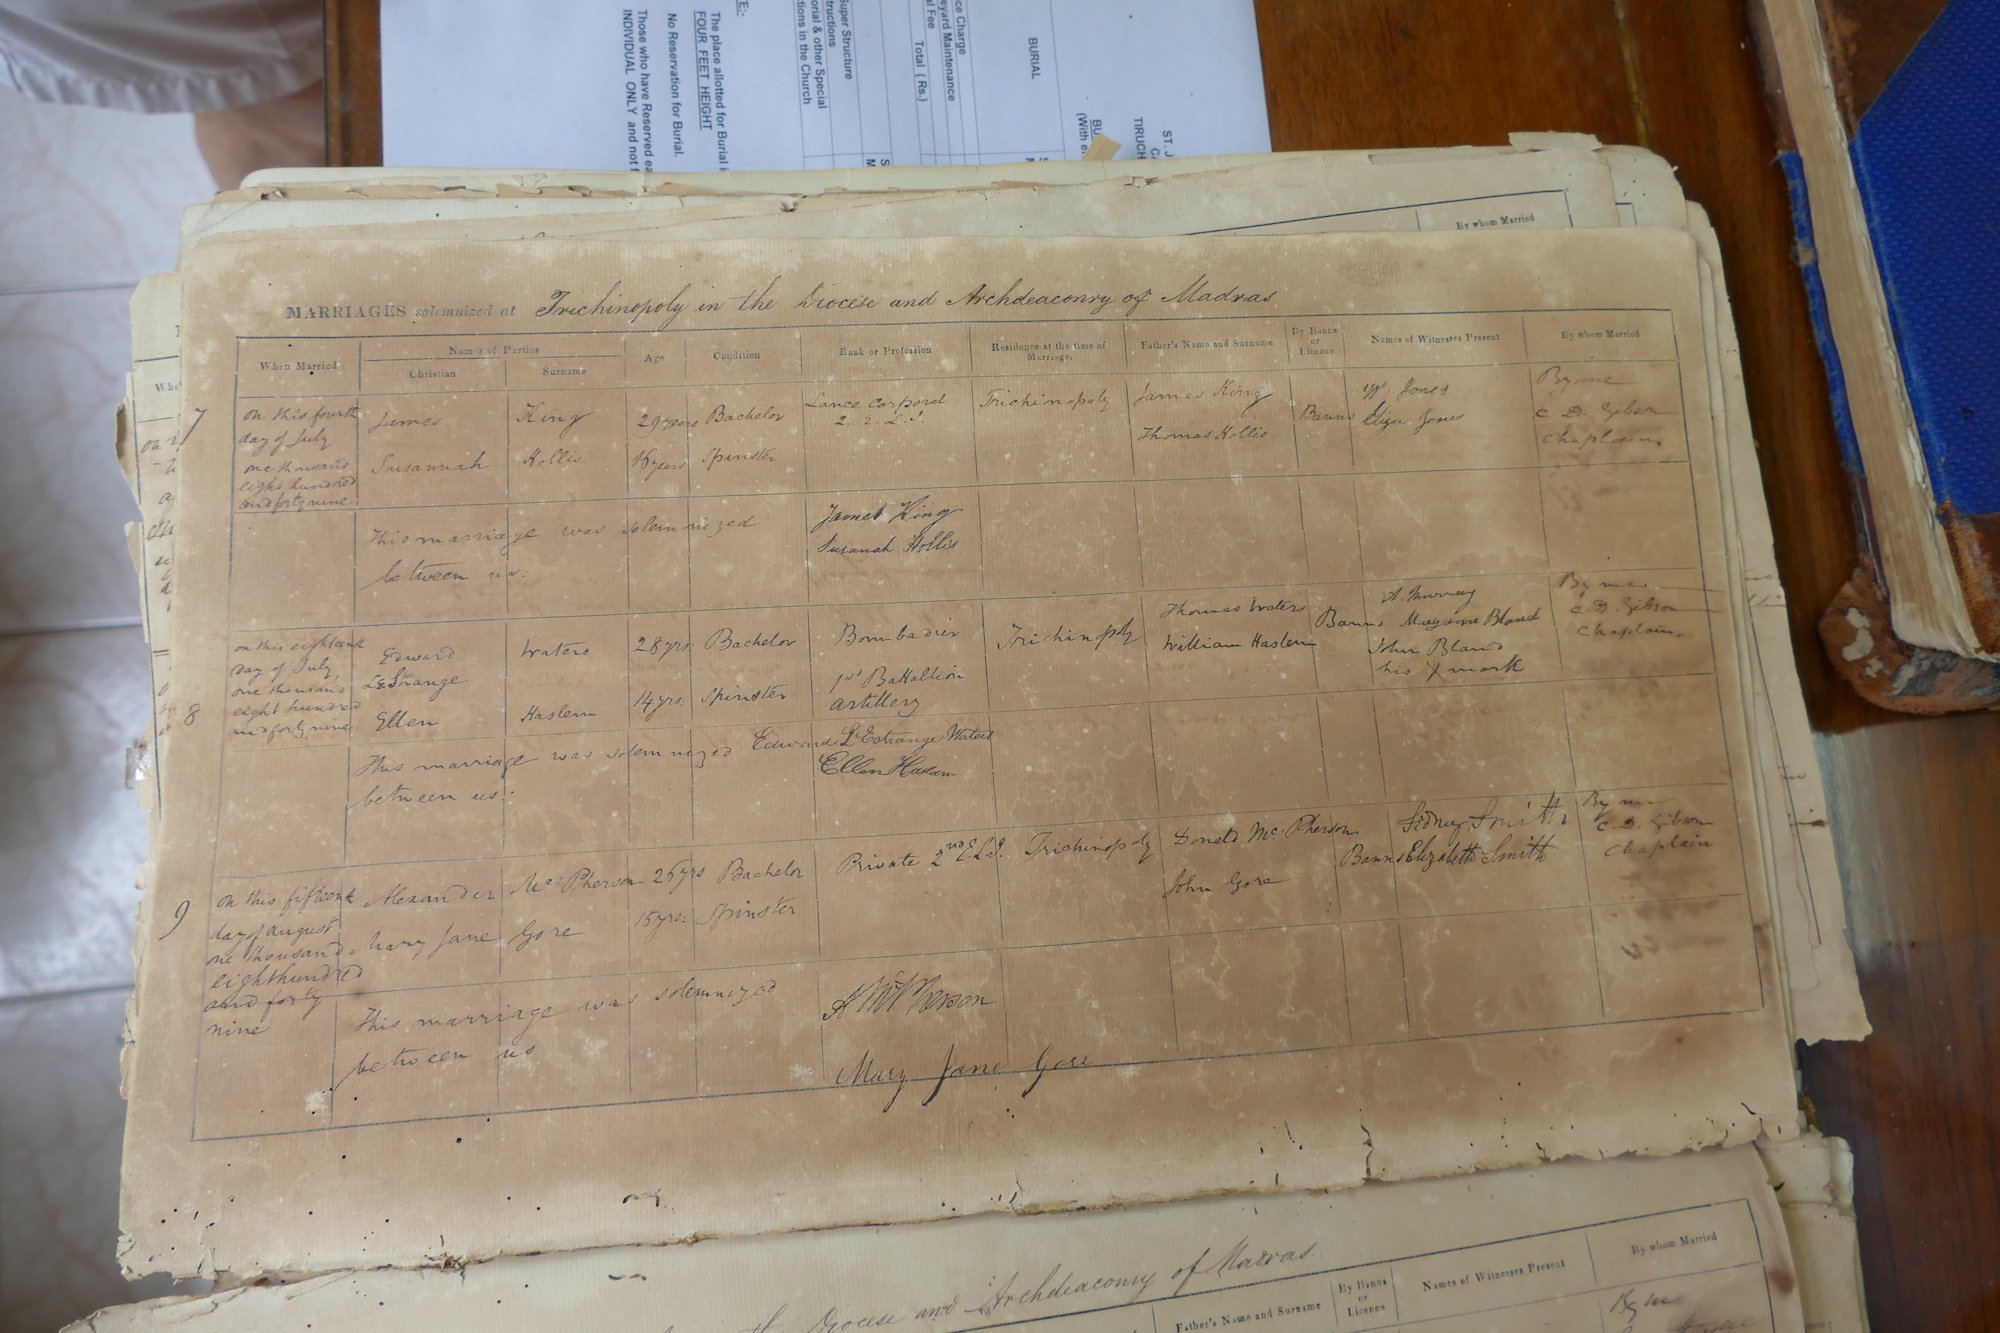 E:
The place allotted for Burial i
FOUR FEET HEIGHT
No Reservation for Burial.
Those who have Reserved ea
INDIVIDUAL ONLY and not f
BURIAL
ce Charge
eyard Maintenance
l Fee
Total (Rs.)
Super Structure
tructions
orial & other Special
tions in the Church
ST. J
TIRUCH
BU
(With e
By whom Married
MARRIAGES solemnized at Trichinopoly in the Diocese and Archdeaconry of Madras
When Married
Names of Parties
Christian
Surname
Age
Condition
Rank or Profession
Residence at the time of Marriage.
Father's Name and Surname
By Banns or Licence
Names of Witnesses Present
By whom Married
7
on this fourth
day of July
one thousand
eight hundred
and forty nine
James King 29 years Bachelor
Lance Corporal
Trichinopoly
James King
Banns
Wm Jones
Eliza Jones
By me
C. D. Gibson
Chaplain
Susannah Hollis 16 years Spinster
Thomas Hollis
This marriage was solemnized
between us:
James King
Susanah Hollis
8
on this eighteenth
day of July
one thousand
eight hundred
and forty nine
Edward
LeStrange
Waters 28 yrs. Bachelor
Bombadier
1st Battallion
artillery
Trichinopoly
Thomas Waters
William Haslem
Banns
A. Murray
Mary anne Bland
John Bland
his X mark
By me
C. D. Gibson
Chaplain
Ellen Haslem 14 yrs. Spinster
This marriage was solemnized
between us:
Edward L'Estrange Waters
Ellen Haslem
9
on this fifteenth
day of august
one thousand
eight hundred
and forty
nine
Alexander McPherson 26 yrs Bachelor
Private 2nd E.L.I.
Trichinopoly
Donald McPherson
Banns
Sidney Smith
Elizabeth Smith
By me
C. D. Gibson
Chaplain
Mary Jane Gore 15 yrs. Spinster
John Gore
This marriage was solemnized
between us
A McPherson
Mary Jane Gore
Diocese and Archdeaconry of Madras
Father's Name and Surname
By Banns or Licence
Names of Witnesses Present
By whom Married
By me